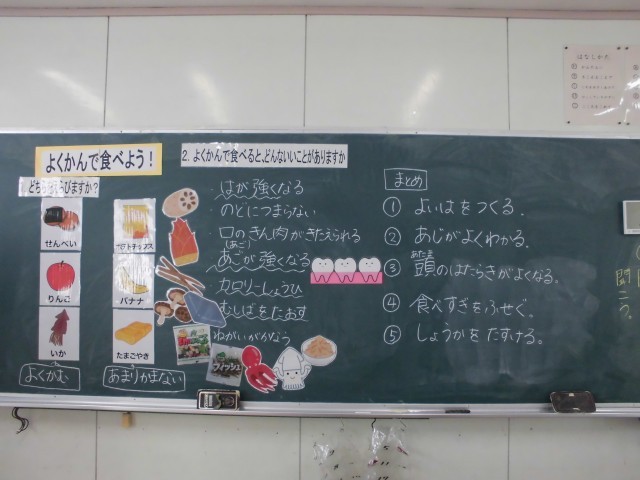 はなしかた
よくかんで食べよう！
2. よくかんで食べると、どんないいことがありますか
1. どちらをえらびますか？
せんべい
りんご
いか
よくかむ
ポテトチップス
バナナ
たまごやき
あまりかまない
・はが強くなる
・のどにつまらない
・口のきん肉がきたえられる
(あご)
・あごが強くなる
・カロリーしょうひ
・むしばをたおす
ねがいがかなう
フィッシュ
まとめ
① よいはをつくる。
② あじがよくわかる。
あたま
③ 頭のはたらきがよくなる。
④ 食べすぎをふせぐ。
⑤ しょうかをたすける。
聞こう。